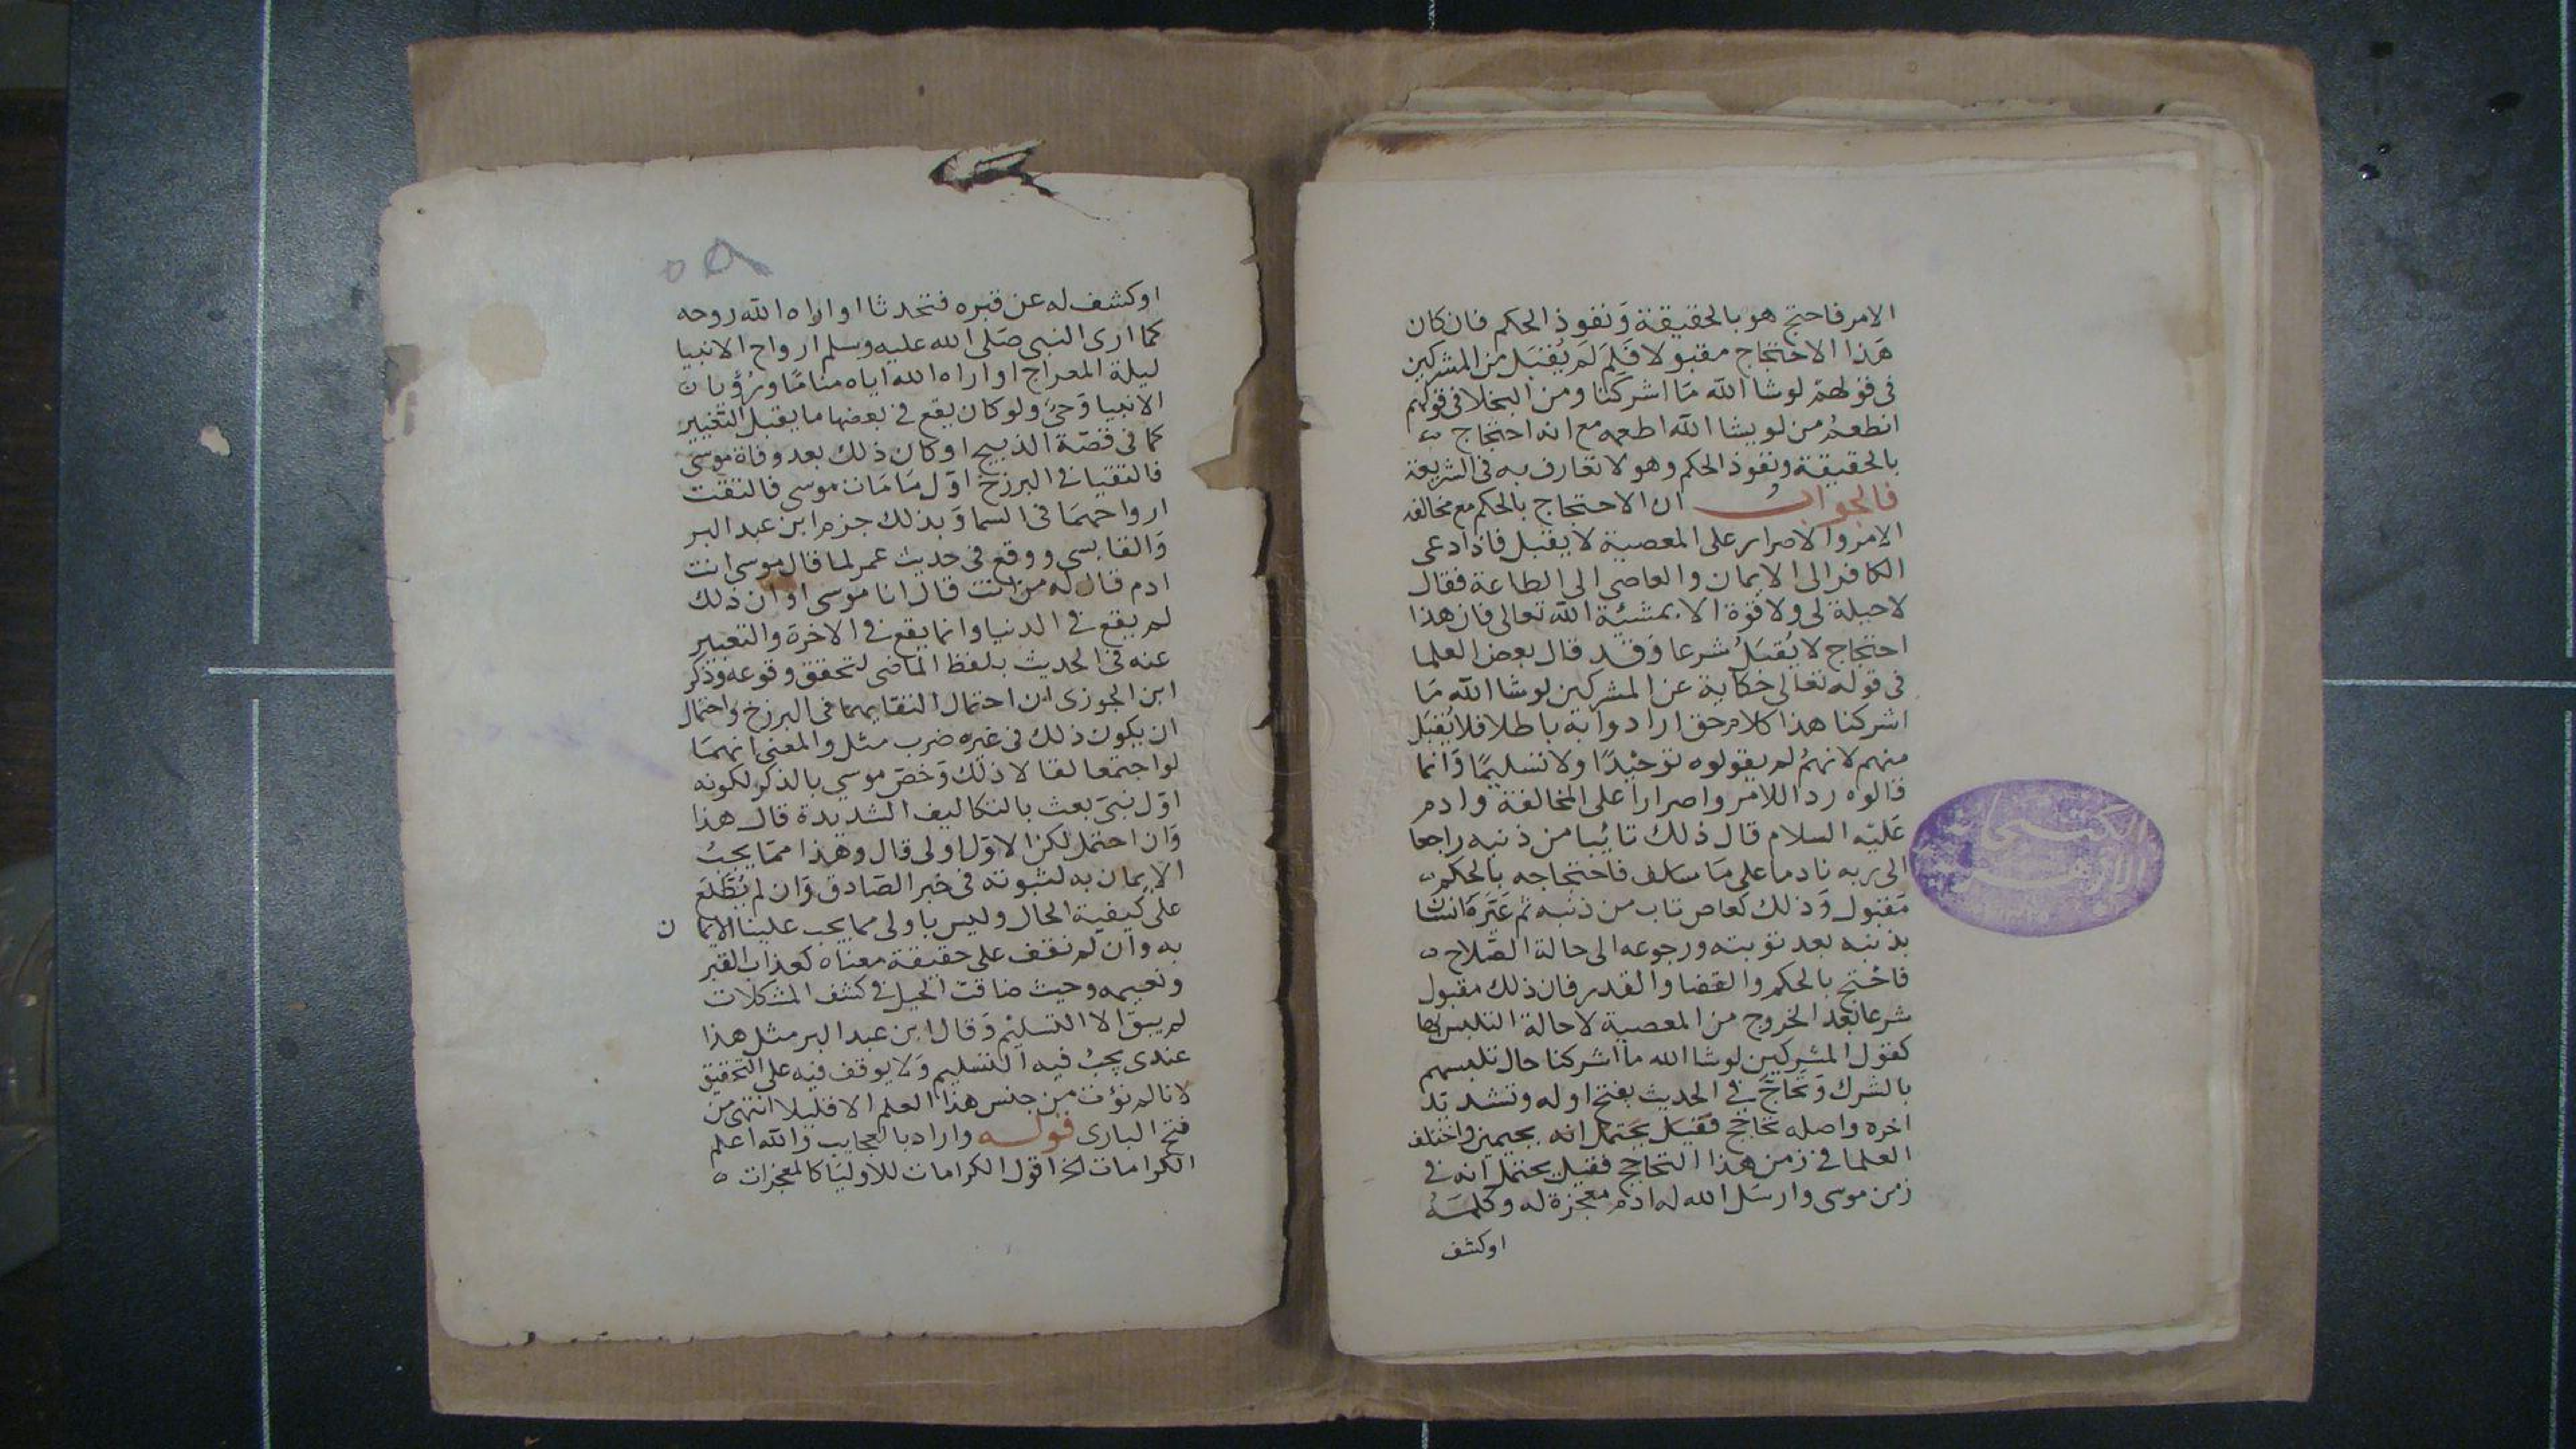 الامر فاحتج هو بالحقيقة وَنفوذ الحكم فان كان
هَذا الاحتجاج مقبولا فَلِمَ لَم يُقبَل من المشركين
فى قولهم لوشا الله مَا اشركنا ومن البخلا فى قولهم
انطعمُ من لو يشا الله اطعمه مع انه احتجاج
بالحقيقة ونفوذ الحكم وهو لا تعارف به فى الشريعة
فالجوابُ ان الاحتجاج بالحكم مع مخالفة
الامر والاصرار على المعصية لا يقبل فاذا دعى
الكافر الى الايمان والعاصى الى الطاعة فقال
لاحيلة لى ولا قوة الا بمشئية الله تعالى فان هذا
احتجاج لا يُقبَلُ شرعا وَقد قال بعض العلما
فى قوله تعالى حكاية عن المشركين لوشا الله مَا
اشركنا هذا كلام حق ارادوا به باطلا فلا يُقبَل
منهم لانهمُ لم يقولوه توحْيدًا ولا تسليمًا وَانما
قالوه رد اللامر واصرارا على المخالفة وادم
عَليْه السلام قال ذلك تائبا من ذنبه راجعا
الى ربه نادما على مَا سلف فاحتجاجه بالحكم
مَقبول وَذلك كعاص تاب من ذنبه ثم عَيَّرهَ انسَان
بذنبه بعد توبته ورجوعه الى حالة الصَّلاح
فاحْتج بالحكم والقضا والقدر فان ذلك مقبول
شرعا بَعْد الخروج من المعصية لا حالة التلبس بها
كقول المشركين لوشا الله ما اشركنا حال تلبسهم
بالشرك وَتحَاجَّ فى الحديث بفتح اوله وتشديد
اخره واصله تحاجج فقيَل يحَتمل انه بجيمين واختلف
العلما فى زمن هذا التحاجج فقيل يحتمل انه فى
زمن موسى وارسَل الله له ادم معجزة له وكلمَهُ
اوكشف
٥٨
اوكشف له عن قبره فتحدثا او اراه الله روحه
كما ارى النبى صَلى الله عليه وسلم ارواح الانبيا
ليلة المعراج او اراه الله اياه منامًا ورُؤيا
الانبيا وَحىٌ ولو كان يقع فى بعضها ما يقبل التَّغيير
كما فى قصّة الذبيح او كان ذلك بعد وفاة موسى
فالتقيا فى البرزخ اوّل مَا مَات موسى فالتقت
ارواحهمَا فى السما وَبذلك جزم ابن عبد البر
وَالقابسى ووقع فى حديث عمر لما قال موسى انت
ادم قال له من انت قال انا موسى او ان ذلك
لم يقع فى الدنيا وانما يقع فى الاخرة والتعبير
عنه فى الحديث بلفظ الماضى لتحقق وقوعه وذكر
ابن الجوزى ان احتمال التقايهما فى البرزخ واحتمال
ان يكون ذلك فى غيره ضرب مثل والمعنى انهمَا
لو اجتمعا لقالا ذلك وَخصّ موسي بالذكر لكونه
اوّل نبىّ بعث بالتكاليف الشديدة قال هذا
وَان احتمل لكن الاوّل اولى قال وهذا ممَا يجبُ
الايمان به لثبوته فى خبر الصَّادق وَان لم يُطَّلَع
على كيفية الحال وليس باولى مما يجب علينا الايما ن
به وان لم نقف على حقيقة معناه كعذاب القبر
ونعيمه وحيث ضاقت الحيل فى كشف المشكلات
لم يبق الا التسليْم وَقال ابن عبد البر مثل هذا
عندى يجبُ فيه التسليم وَلا يوقف فيه على التحقيق
لانا لم نؤت من جنس هذا العلم الا قليلا انتهى من
فتح البارى قوله واراد بالعجايب وَالله اعلم
الكرامات الخ اقول الكرامات للاوليَا كالمعجزات